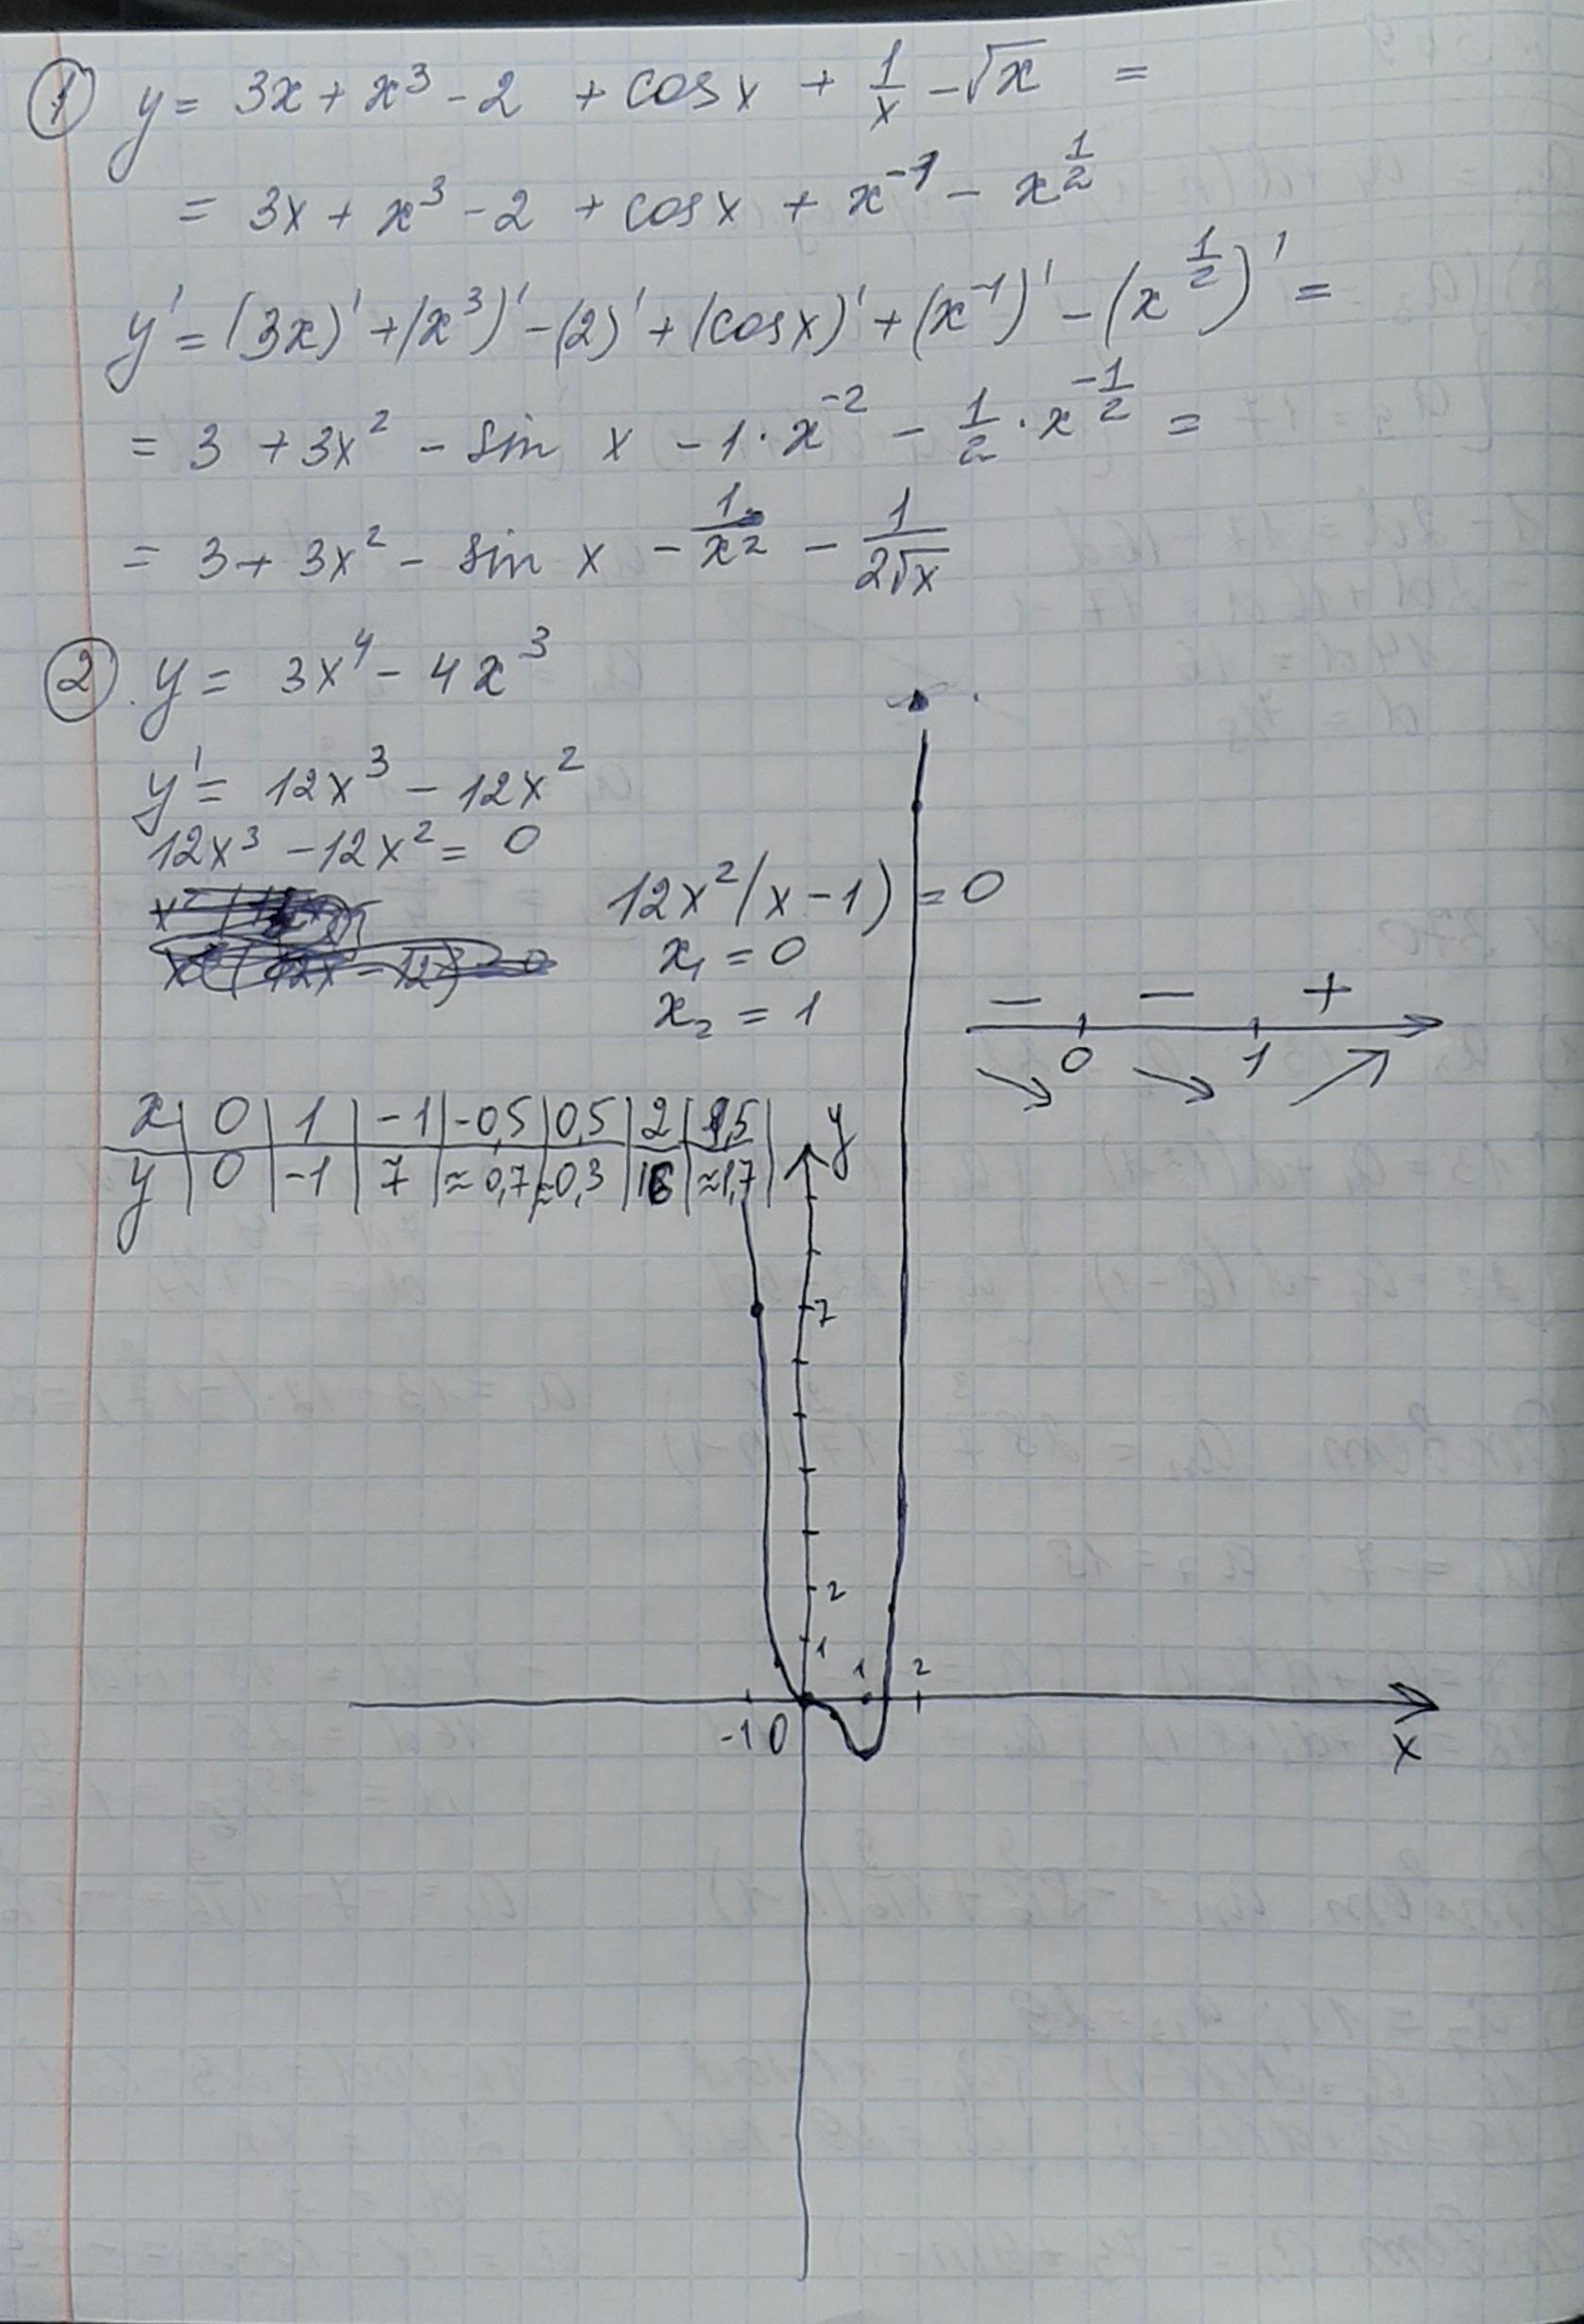 ① y = 3x + x³ - 2 + cos x + 1/x - √x =
= 3x + x³ - 2 + cos x + x⁻¹ - x^(1/2)
y' = (3x)' + (x³)' - (2)' + (cos x)' + (x⁻¹)' - (x^(1/2))' =
= 3 + 3x² - sin x - 1 · x⁻² - 1/2 · x^(-1/2) =
= 3 + 3x² - sin x - 1/x² - 1/(2√x)
② y = 3x⁴ - 4x³
y' = 12x³ - 12x²
12x³ - 12x² = 0
12x² (x - 1) = 0
x₁ = 0
x₂ = 1
- - +
0 1
x | 0 | 1 | -1 | -0,5 | 0,5 | 2 | 1,5 |
y | 0 | -1 | 7 | ≈0,7 | ≈0,3 | 16 | ≈1,7 |
y
7
2
1
1 2
-1 0
x